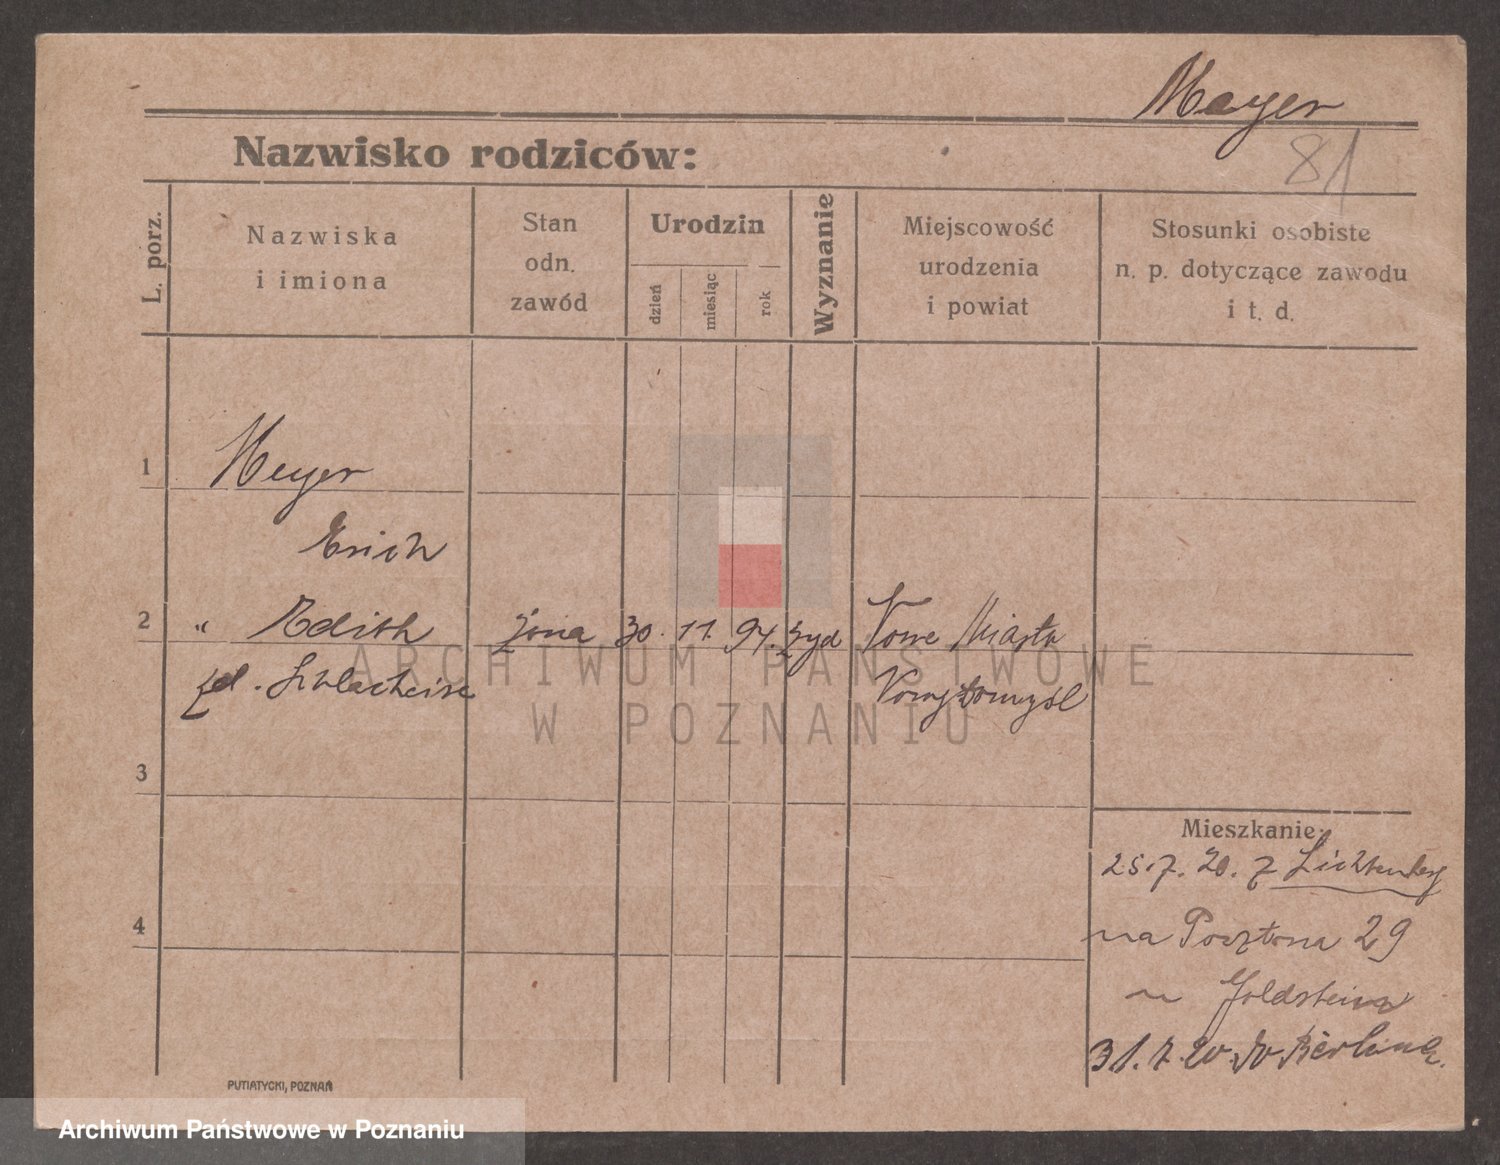 Meyer
81
Nazwisko rodziców:
L. porz.
Nazwiska
i imiona
Stan
odn.
zawód
Urodzin
dzień
miesiąc
rok
Wyznanie
Miejscowość
urodzenia
i powiat
Stosunki osobiste
n. p. dotyczące zawodu
i t. d.
1
Meyer
Erich
2 " Edith żona 30. 11. 94. żyd Nowe Miasto
Nowytomyśl
3
4
Mieszkanie:
25.7.20. z Lichtenberg
na Pocztowa 29
u Goldsteina
31.7.20. do Berlina.
PUTIATYCKI, POZNAŃ
ARCHIWUM PAŃSTWOWE
W POZNANIU
Archiwum Państwowe w Poznaniu